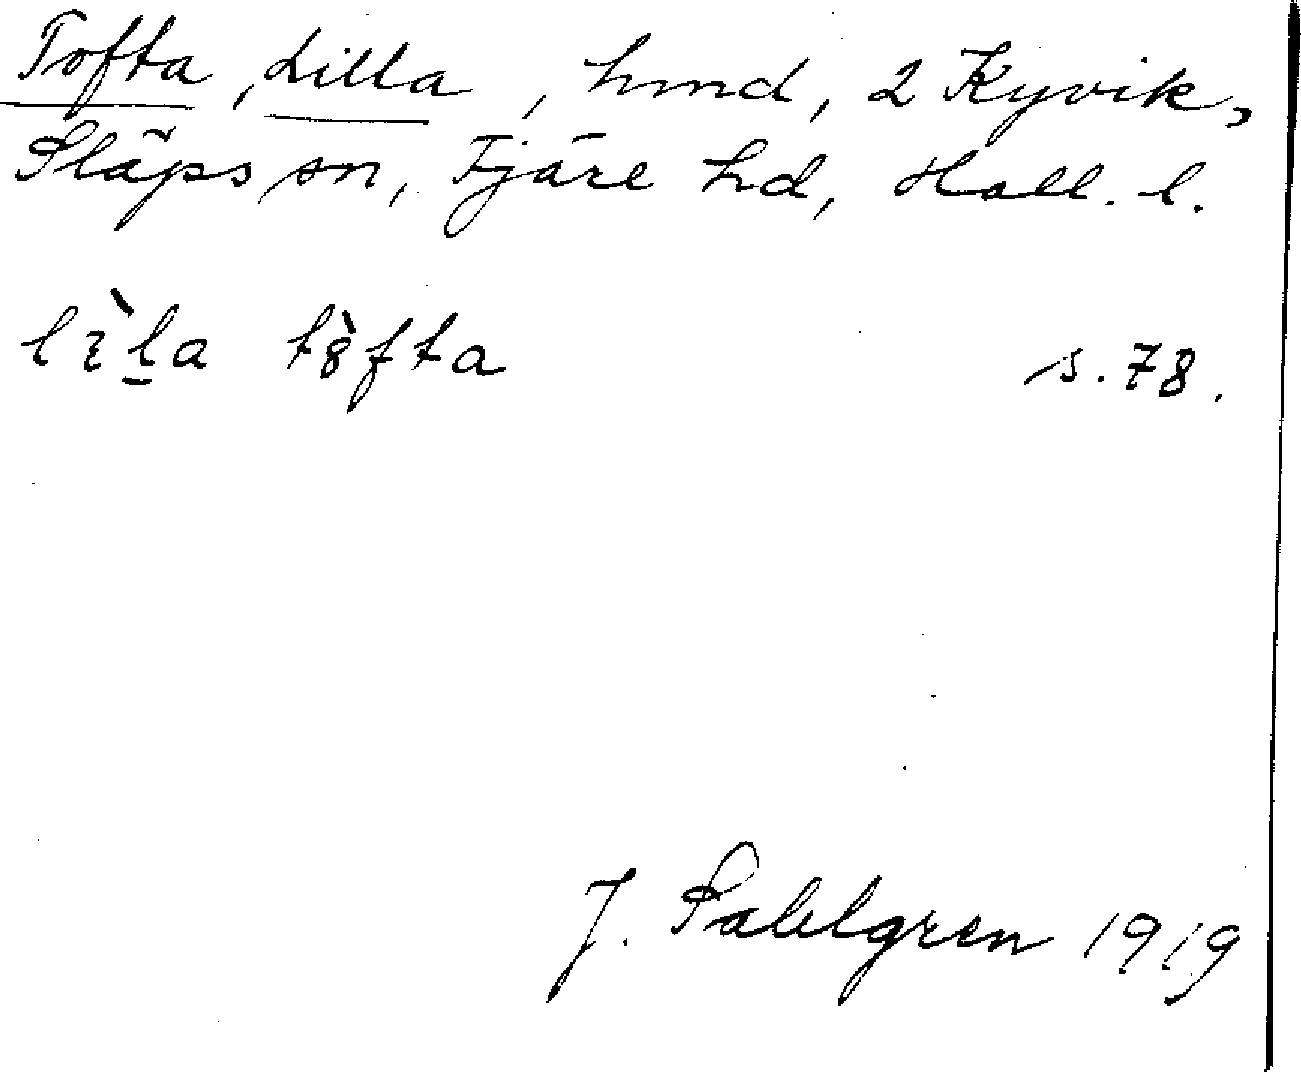 Tofta, Lilla, hmd, 2 Kyvik,
Släps sn, Fjäre hd, Hall. l.
lìḻa tò̀fta s. 78.
J. Sahlgren 1919